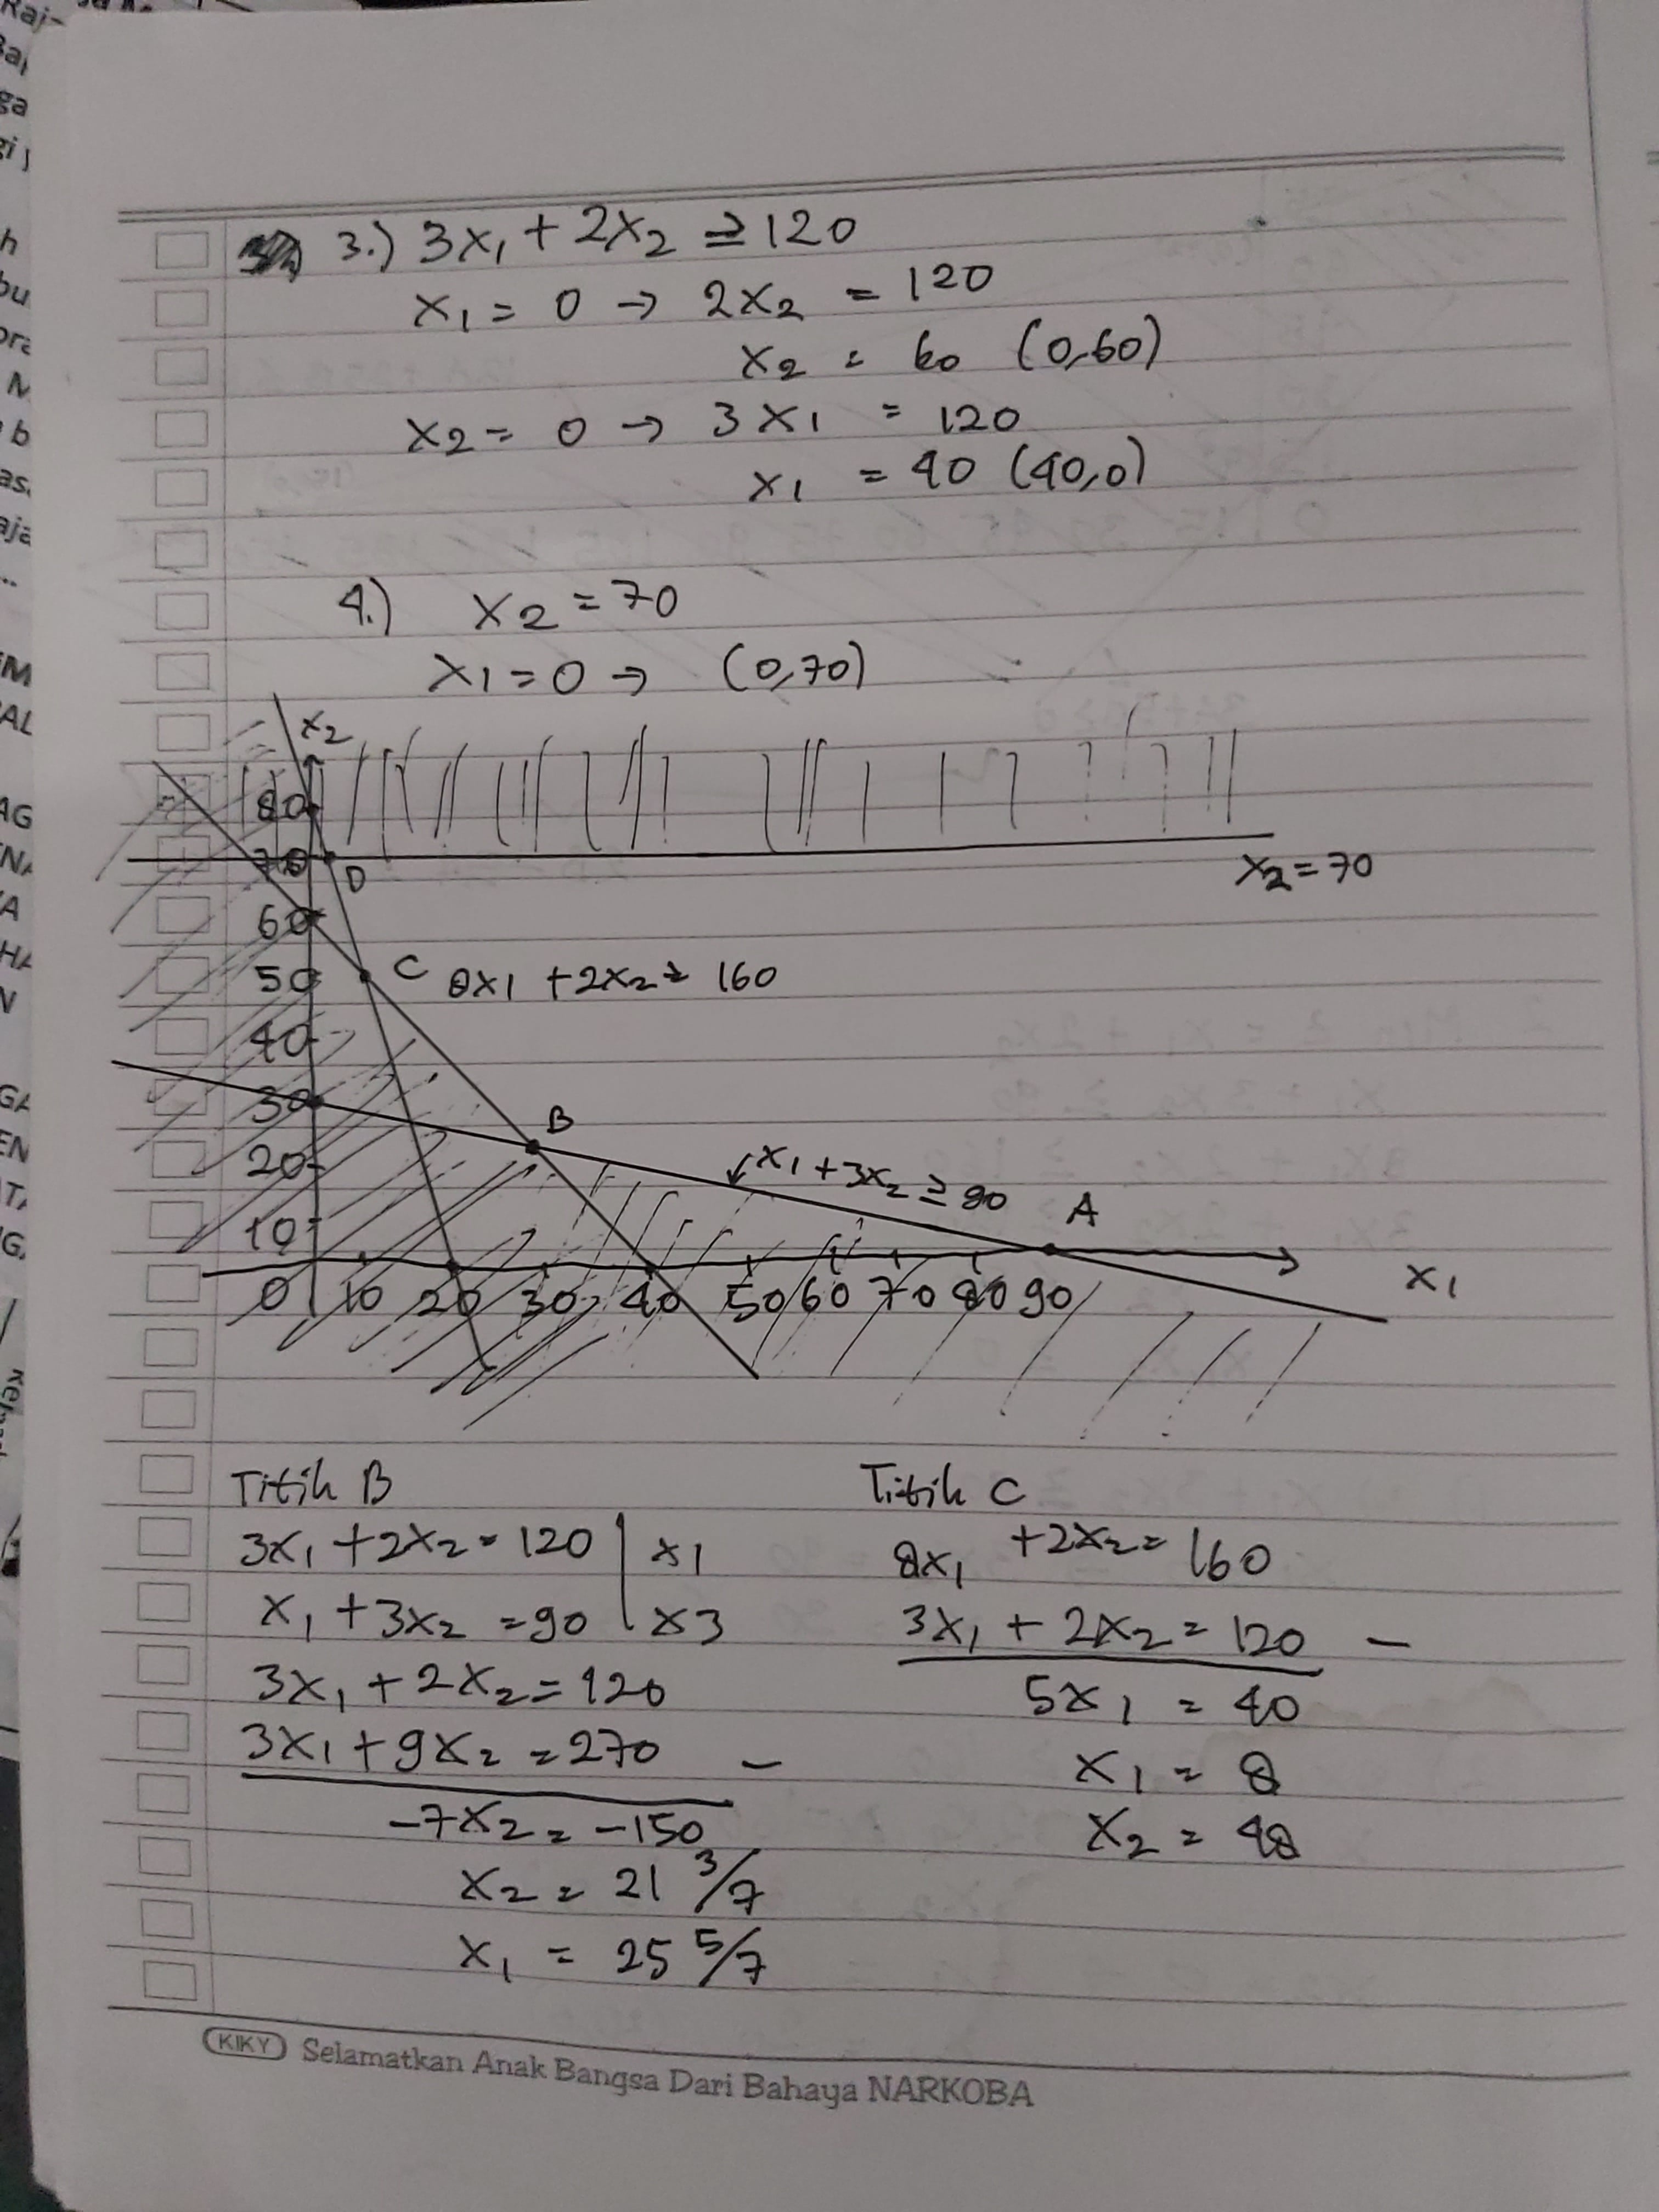 3.) 3x₁ + 2x₂ ≥ 120
x₁ = 0 → 2x₂ = 120
x₂ = 60 (0,60)
x₂ = 0 → 3x₁ = 120
x₁ = 40 (40,0)
4.) x₂ = 70
x₁ = 0 → (0,70)
x₂
80
70
D
x₂ = 70
60
50
C 8x₁ + 2x₂ ≥ 160
40
30
B
20
x₁ + 3x₂ ≥ 90
A
10
0 10 20 30 40 50 60 70 80 90
x₁
Titik B
3x₁ + 2x₂ = 120 | x1
x₁ + 3x₂ = 90 | x3
3x₁ + 2x₂ = 120
3x₁ + 9x₂ = 270 −
−7x₂ = −150
x₂ = 21 3/7
x₁ = 25 5/7
Titik C
8x₁ + 2x₂ = 160
3x₁ + 2x₂ = 120 −
5x₁ = 40
x₁ = 8
x₂ = 48
KIKY Selamatkan Anak Bangsa Dari Bahaya NARKOBA